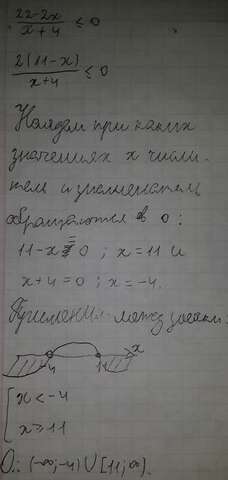 (22-2x)/(x+4) ≤ 0
2(11-x)/(x+4) ≤ 0
Найдем при каких
значениях x числи-
тель и знаменатель
обращаются в 0:
11-x = 0; x = 11 и
x+4 = 0; x = -4.
-4 11 x
{ x < -4
x ≥ 11
О.: (-∞; -4) ∪ [11; ∞).